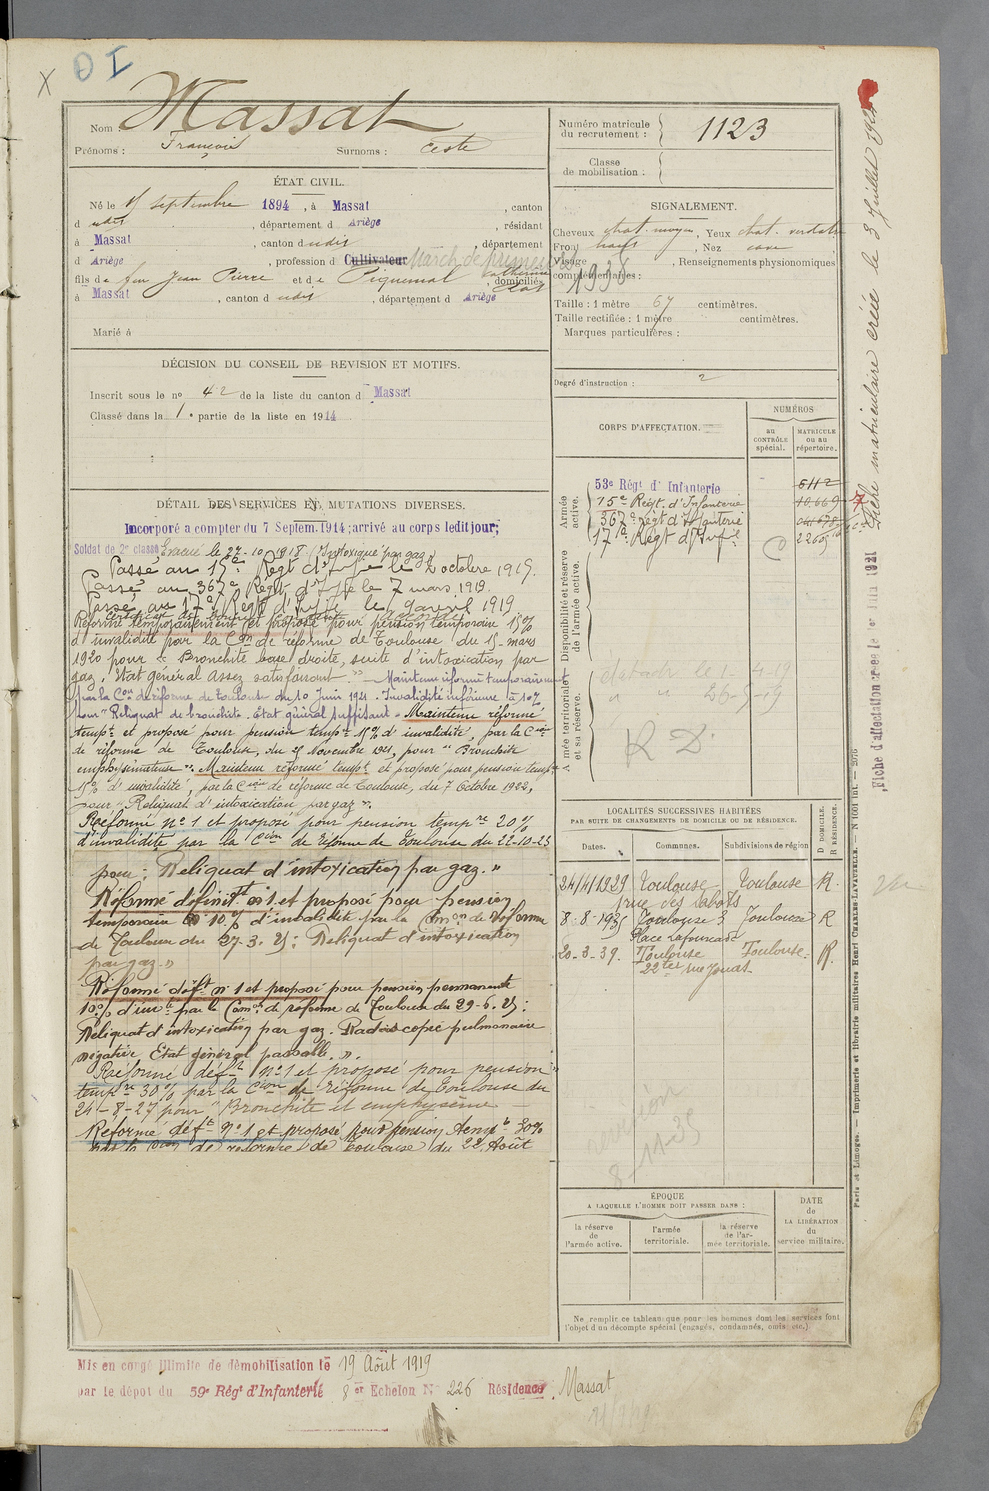 X
O I
Nom : Massat
Prénoms : François Surnoms : Ceste
Numéro matricule
du recrutement : 1123
Classe
de mobilisation :
ÉTAT CIVIL.
Né le septembre 1894, à Massat, canton
d udit, département d Ariège, résidant
à Massat, canton d udit, département
d Ariège, profession d Cultivateur March. de
fils de feu Jean Pierre et de Piquemal Catherine, domiciliés
à Massat, canton d udit, département d Ariège
Marié à
SIGNALEMENT.
Cheveux chat. moyen, Yeux chat. verdatre
Front haut, Nez cave
Visage, Renseignements physionomiques
complémentaires : 1936
Taille : 1 mètre 67 centimètres.
Taille rectifiée : 1 mètre centimètres.
Marques particulières :
Degré d'instruction : 2
DÉCISION DU CONSEIL DE REVISION ET MOTIFS.
Inscrit sous le no 42 de la liste du canton d Massat
Classé dans la 1e partie de la liste en 1914
DÉTAIL DES SERVICES ET MUTATIONS DIVERSES.
Incorporé à compter du 7 Septem. 1914; arrivé au corps ledit jour;
Soldat de 2e classe Evacué le 27-10-1918 (Intoxiqué par gaz)
Passé au 15e Régt d'Infie le 2 octobre 1915.
Passé au 367e Régt d'Ifie le 7 mars 1919.
Passé au 17e Régt d'Infie le avril 1919
Réformé temporairement et proposé pour pension temporaire 15%
d'invalidité par la Con de réforme de Toulouse du 15 mars
1920 pour "Bronchite base droite, suite d'intoxication par
gaz. Etat général assez satisfaisant." Maintenu réformé temporairement
par la Con de réforme de Toulouse du 10 Juin 1921. Invalidité inférieure à 10%
pour "Reliquat de bronchite. Etat général suffisant. Maintenu réformé
tempt et proposé pour pension tempe 15% d'invalidité, par la Cion
de réforme de Toulouse, du Novembre 1921, pour "Bronchite
emphysémateuse". Maintenu réformé tempt et proposé pour pension tempre
15% d'invalidité, par la Cion de réforme de Toulouse, du 7 Octobre 1922,
pour "Reliquat d'intoxication par gaz".
Réformé no 1 et proposé pour pension tempre 20%
d'invalidité par la Cion de réforme de Toulouse du 22-10-23
pour : Reliquat d'intoxication par gaz."
Réformé définitt no 1 et proposé pour pension
temporaire 10% d'invalidité par la Comon de réforme
de Toulouse du 27-3-25 : Reliquat d'intoxication
par gaz."
Réformé déft no 1 et proposé pour pension permanente
10% d'invté par la Comon de réforme de Toulouse du 29-6-25 :
Reliquat d'intoxication par gaz. Radioscopie pulmonaire
négative. Etat général passable.".
Réformé déft no 1 et proposé pour pension
tempre 30% par la Cion de réforme de Toulouse du
24-8-27 pour "Bronchite et emphysème
Réformé déft No 1 et proposé pour pension tempre 30%
par la Cion de réforme de Toulouse du 22 Août
CORPS D'AFFECTATION.
NUMÉROS
au
CONTRÔLE
spécial.
MATRICULE
ou au
répertoire.
Armée
active.
53e Régt d'Infanterie 5112
15e Régt d'Infanterie 10.669
367e régt d'Infanterie
17e Régt d'Infie
Disponibilité et réserve
de l'armée active.
Armée territoriale
et sa réserve.
le 1-4-19
" "
R D.
LOCALITÉS SUCCESSIVES HABITÉES
PAR SUITE DE CHANGEMENTS DE DOMICILE OU DE RÉSIDENCE.
D DOMICILE.
R RÉSIDENCE.
Dates. Communes. Subdivisions de région
24/4/1929 Toulouse Toulouse R.
rue des Sabots
8-8-1935 Toulouse Toulouse R
Place Lafourcade
20-3-39. Toulouse Toulouse. R.
22ter rue
révision
8-11-35
ÉPOQUE
A LAQUELLE L'HOMME DOIT PASSER DANS :
la réserve
de
l'armée active.
l'armée
territoriale.
la réserve
de l'ar-
mée territoriale.
DATE
de
LA LIBÉRATION
du
service militaire.
Ne remplir ce tableau que pour les hommes dont les services font
l'objet d'un décompte spécial (engagés, condamnés, omis etc.)
Mis en congé illimité de démobilisation le 19 Août 1919
par le dépôt du 59e Régt d'Infanterie 8er Echelon No 226 Résidence Massat
Fiche matriculaire créée le 3 Juillet
Fiche d'affectation créée le 1er Juin 1921
Paris et Limoges. — Imprimerie et librairie militaires Henri CHARLES-LAVAUZELLE. — N 1601 Int. —